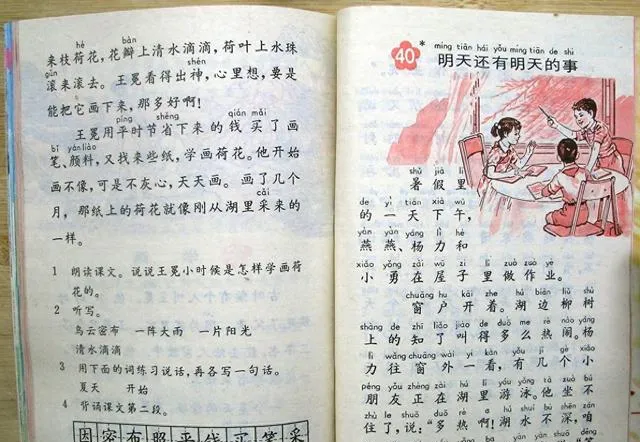 hé bàn
来枝荷花，花瓣上清水滴滴，荷叶上水珠
gǔn shén
滚来滚去。王冕看得出神，心里想，要是
能把它画下来，那多好啊！
píng shěng qián mǎi
王冕用平时节省下来的钱买了画
bǐ yán liào
笔、颜料，又找来些纸，学画荷花。他开始
画不像，可是不灰心，天天画。画了几个
cǎi
月，那纸上的荷花就像刚从湖里采来的
一样。
1 朗读课文。说说王冕小时候是怎样学画荷
花的。
2 听写。
乌云密布 一阵大雨 一片阳光
清水滴滴
3 用下面的词练习说话，再各写一句话。
夏天 开始
4 背诵课文第二段。
因密布照平钱买笔采
40 *
míng tiān hái yǒu míng tiān de shì
明天还有明天的事
shǔ jià lǐ
暑假里
de yì tiān xià wǔ
的一天下午，
yàn yàn yáng lì hé
燕燕、杨力和
xiǎo yǒng zài wū zi lǐ zuò zuò yè
小勇在屋子里做作业。
chuāng hu kāi zhe hú biān liǔ shù
窗户开着。湖边柳树
shàng de zhī liǎo jiào de duō me rè nào yáng
上的知了叫得多么热闹。杨
lì wǎng chuāng wài yí kàn yǒu jǐ gè xiǎo
力往窗外一看，有几个小
péng yǒu zhèng zài hú lǐ yóu yǒng tā zuò bú
朋友正在湖里游泳。他坐不
zhù le shuō duō rè a hú shuǐ bù shēn zán
住了，说：“多热啊！湖水不深，咱